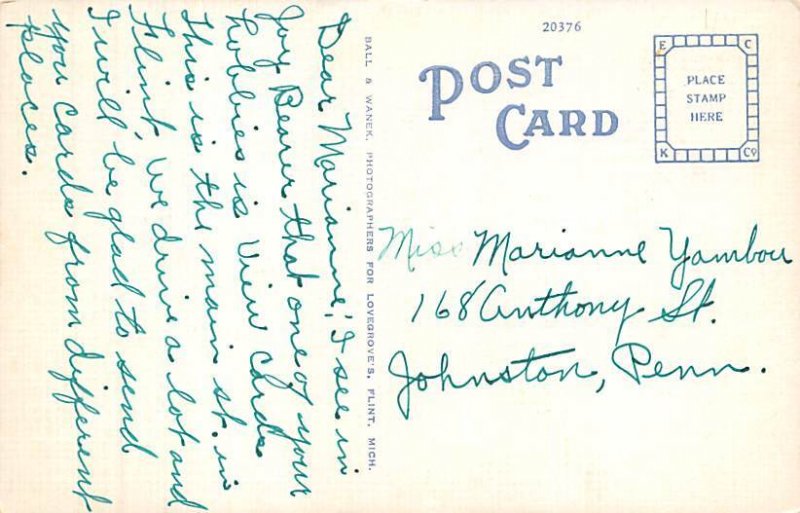 Dear Marianne, I see in
Joy Bearer that one of your
hobbies is View Cards
This is the main st. in
Flint, We drive a lot and
I will be glad to send
you cards from different
places.
BALL & WANEK, PHOTOGRAPHERS FOR LOVEGROVE'S, FLINT, MICH.
20376
POST
CARD
E C
PLACE
STAMP
HERE
K Co
Miss Marianne Yambou
168 Anthony St.
Johnston, Penn.